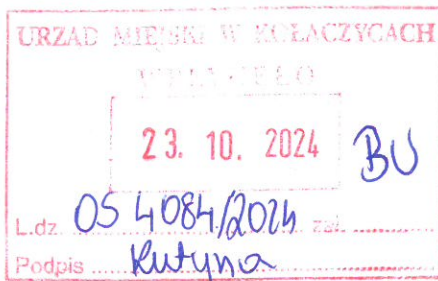 URZĄD MIEJSKI W KOŁACZYCACH
WPŁYNĘŁO
23. 10. 2024 BU
L.dz. OS 4084/2024 zał. ............
Podpis ..... Kutyna .....................